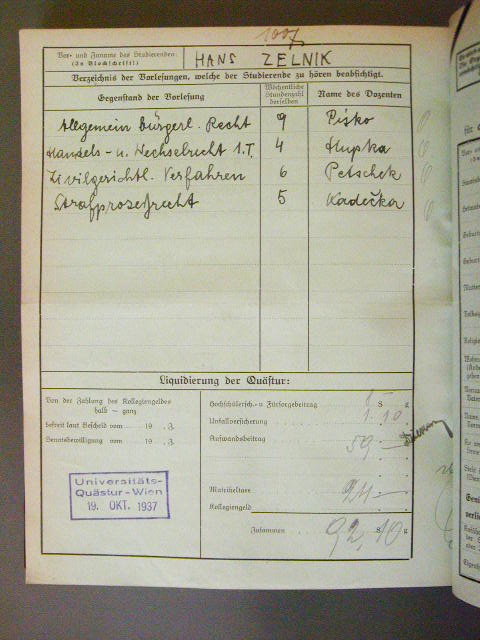 1007
Vor- und Zuname des Studierenden: HANS ZELNIK
(In Blockschrift!)
Verzeichnis der Vorlesungen, welche der Studierende zu hören beabsichtigt.
Gegenstand der Vorlesung Wöchentliche Stundenzahl derselben Name des Dozenten
Allgemein bürgerl. Recht 9 Pisko
Handels- u. Wechselrecht 1.T. 4 Hupka
Zivilgerichtl. Verfahren 6 Petschek
Strafprozeßrecht 5 Kadečka
Liquidierung der Quästur:
Von der Zahlung des Kollegiengeldes
halb - ganz
befreit laut Bescheid vom 19 , Z.
Benutzbewilligung vom 19 , Z.
Universitäts-
Quästur-Wien
19. OKT. 1937
Hochschülersch.- u. Fürsorgebeitrag S g
Unfallversicherung 1.10
Aufwandsbeitrag 59
Matrikeltaxe
Kollegiengeld
Zusammen 92,10 S g